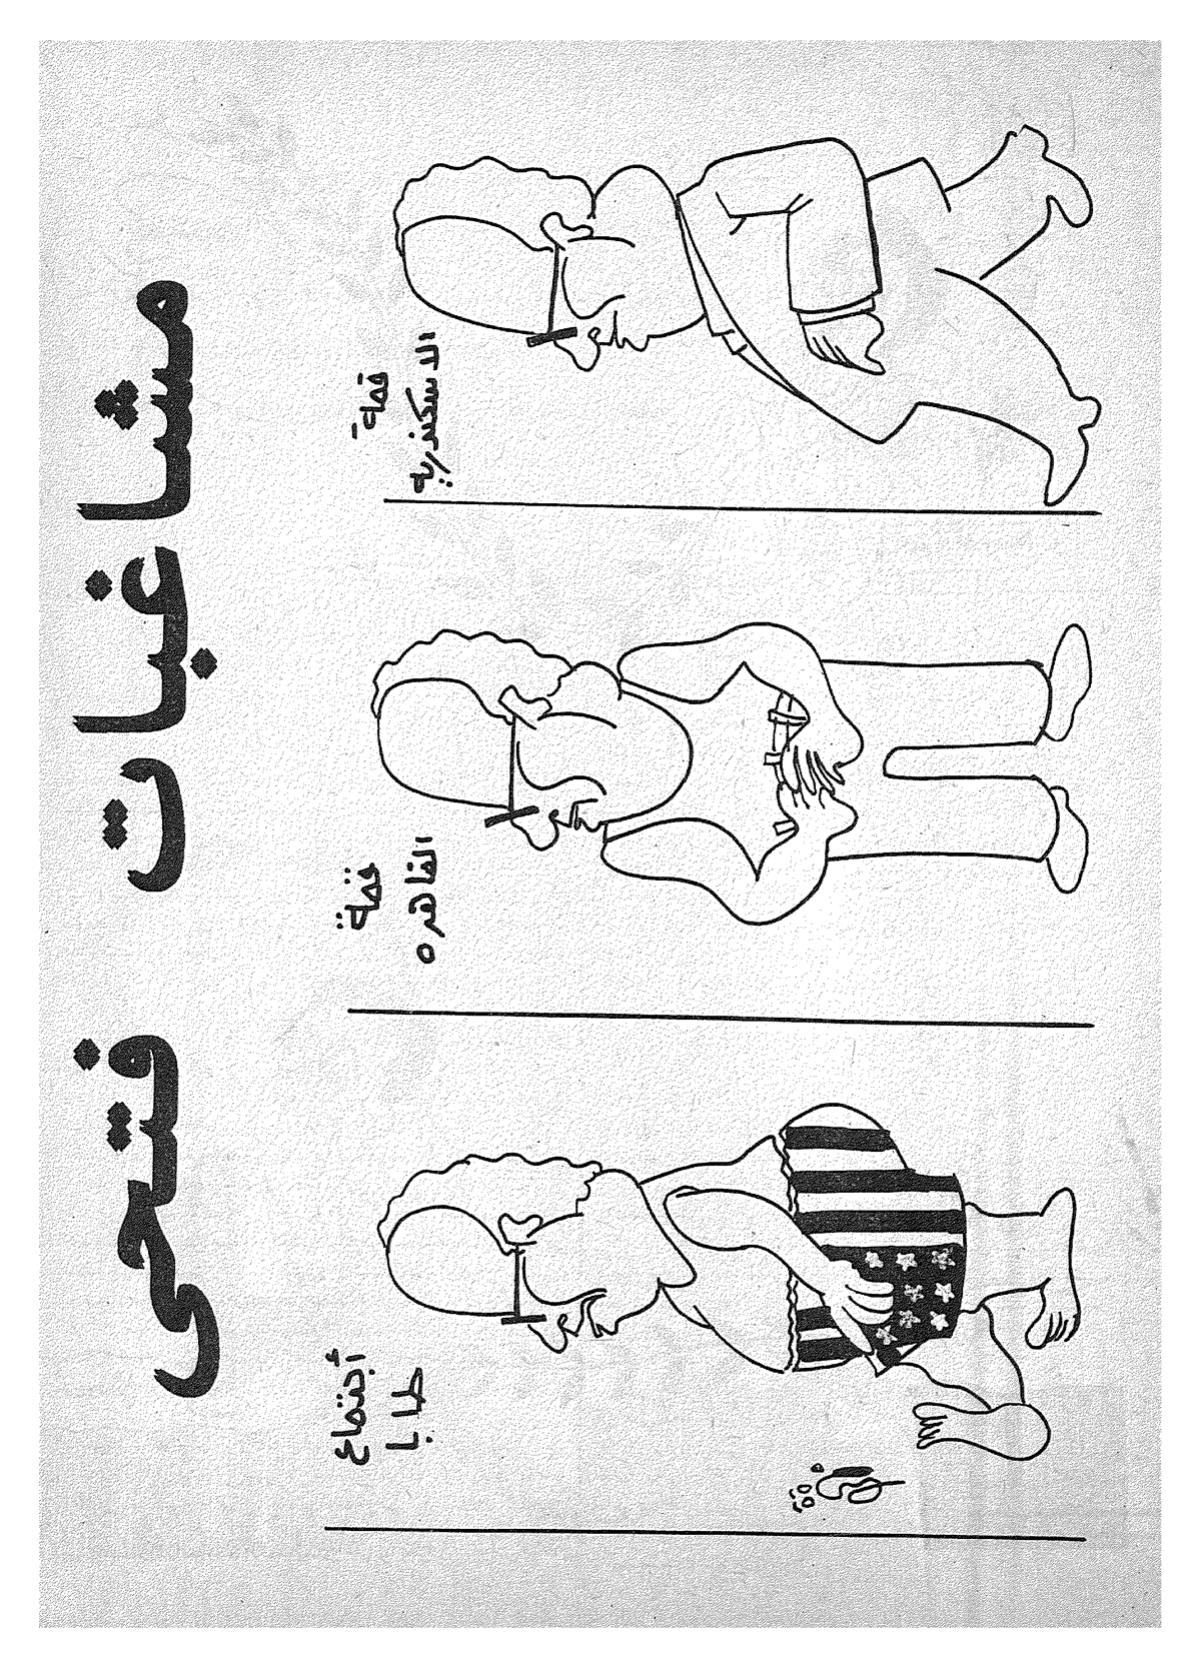 مشاغبات فتحى
قمة
الاسكندريه
قمة
القاهره
أجتماع
طابا